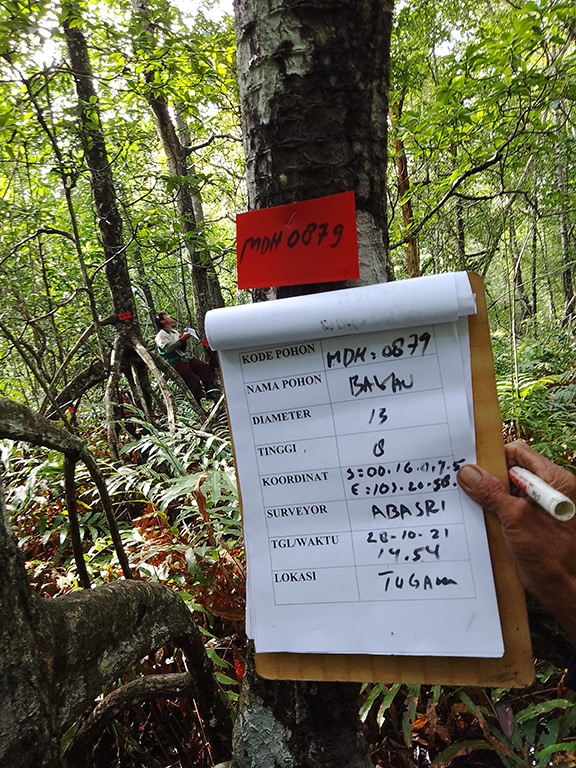 MDH 0879
KODE POHON MDH: 0879
NAMA POHON BAKAU
DIAMETER 13
TINGGI 8
KOORDINAT S:00.16.
E:103.20.58.
SURVEYOR ABASRI
TGL/WAKTU 28-10-21
14.54
LOKASI